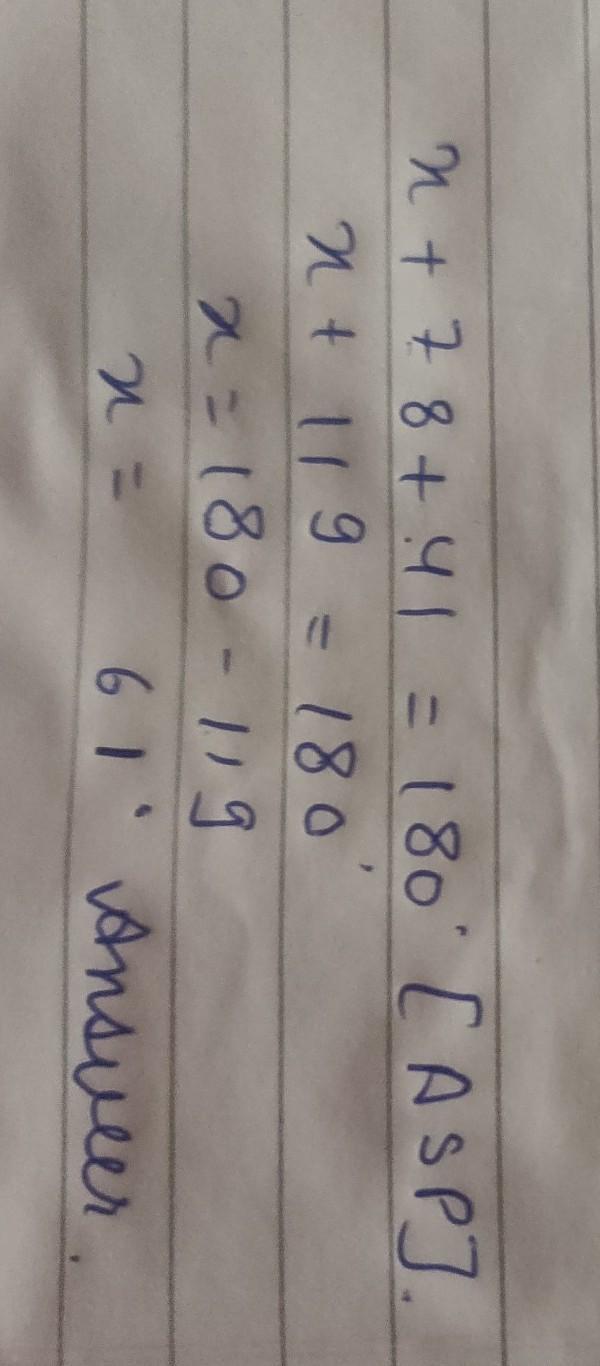 x + 78 + 41 = 180° [ASP].
x + 119 = 180°
x = 180 - 119
x = 61° Answer.